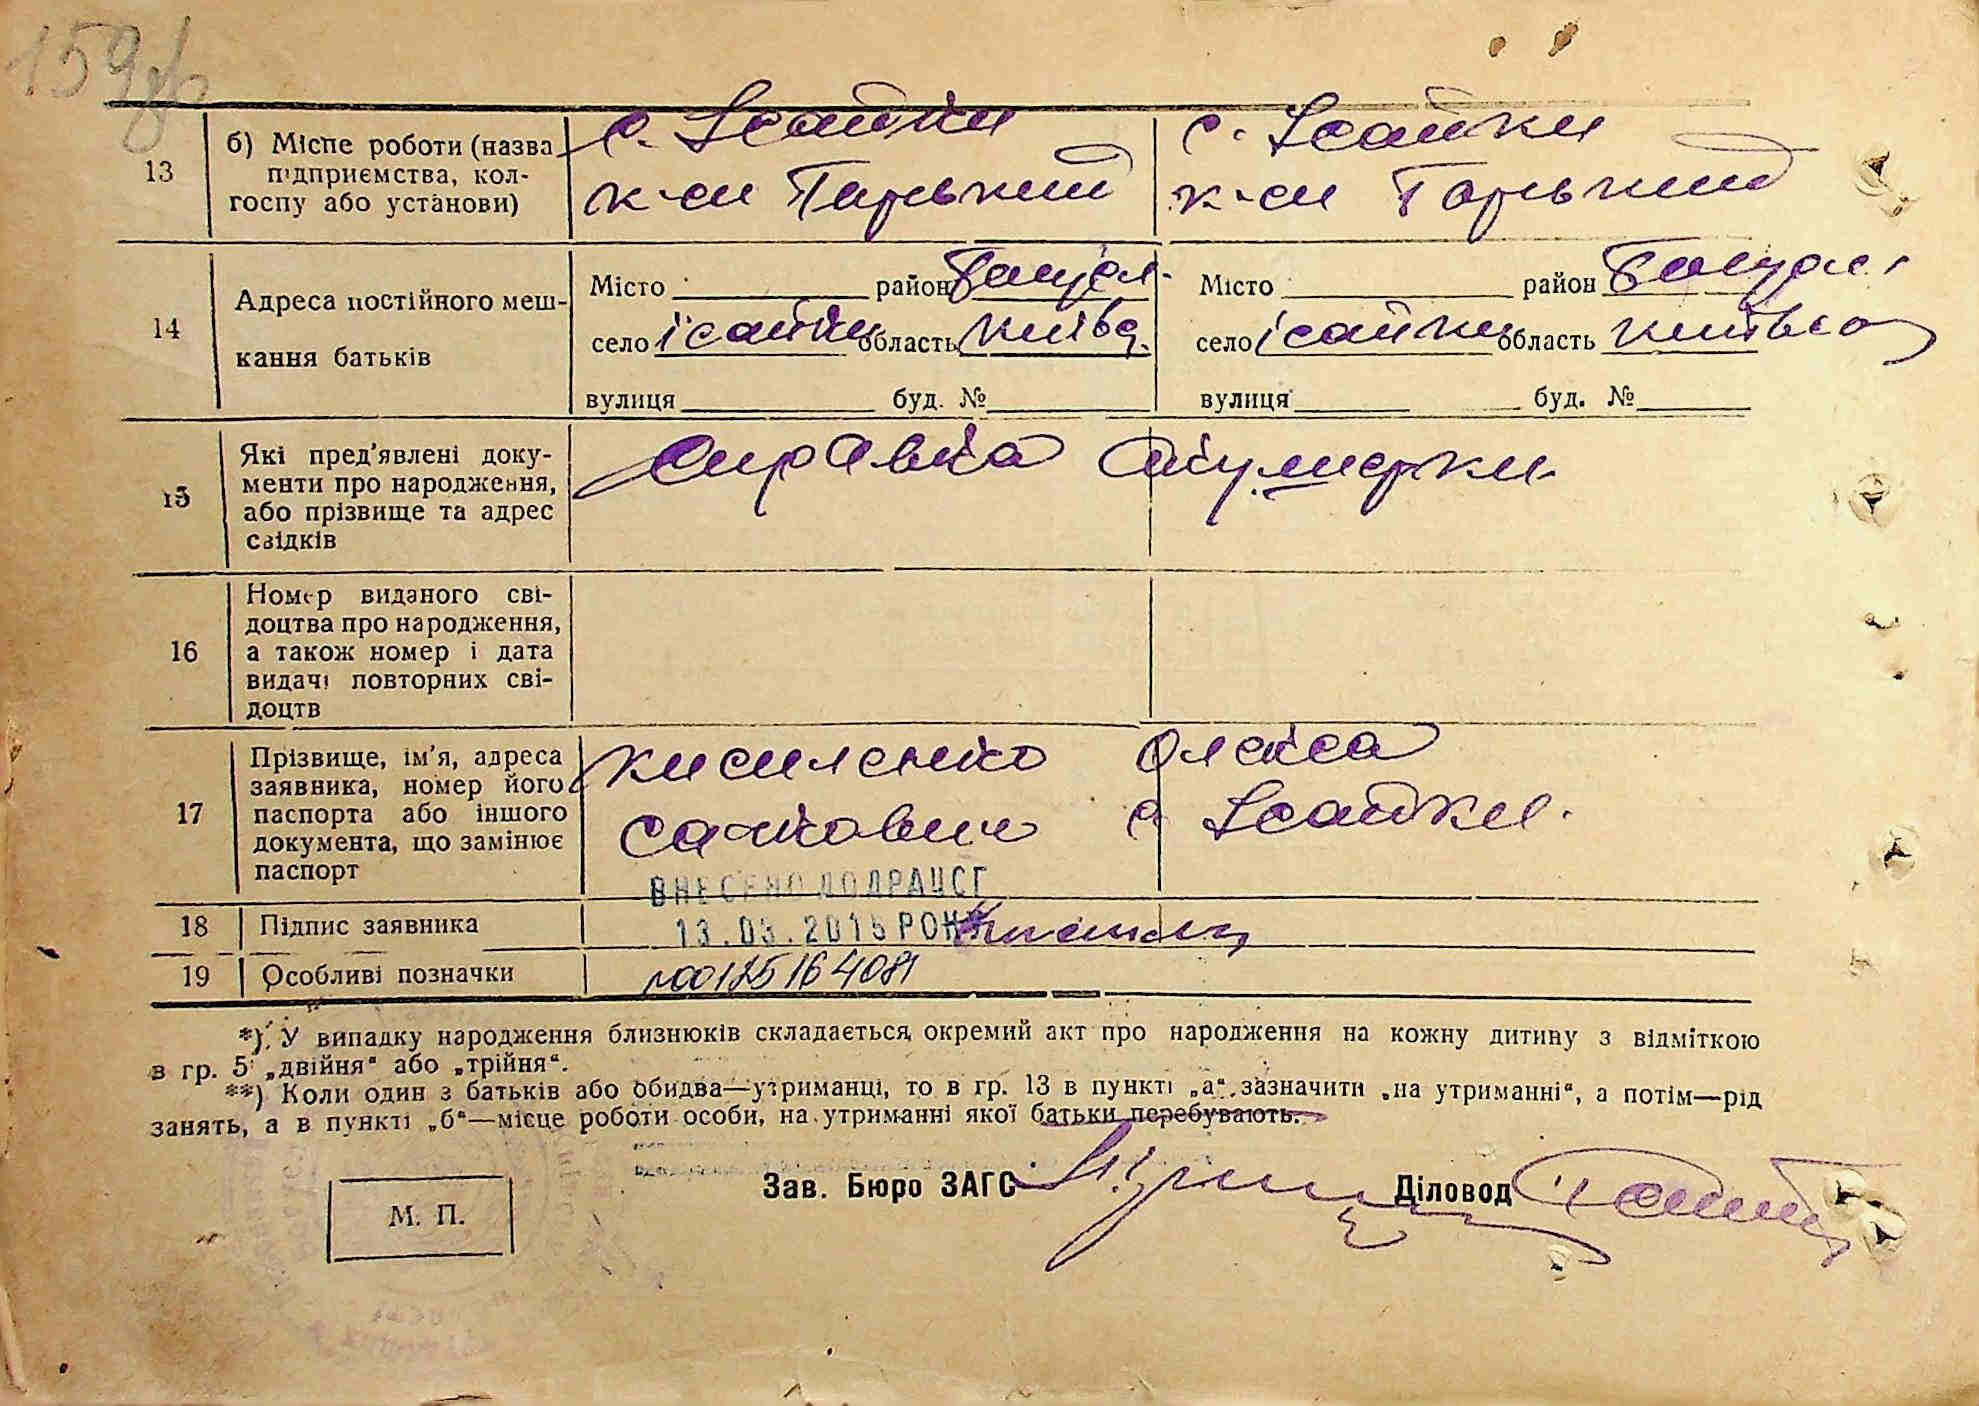 159
13
б) Місце роботи (назва підприємства, колгоспу або установи)
с. Ісайки
к-си Горький
с. Ісайки
к-си Горький
14
Адреса постійного мешкання батьків
Місто район Богусл.
село Ісайки область Київс.
вулиця буд. №
Місто район Богусл.
село Ісайки область Київсь
вулиця буд. №
15
Які пред'явлені документи про народження, або прізвище та адрес свідків
Справка акушерки
16
Номер виданого свідоцтва про народження, а також номер і дата видачі повторних свідоцтв
17
Прізвище, ім'я, адреса заявника, номер його паспорта або іншого документа, що замінює паспорт
Кисиленко Олекса
Сачкович с Ісайки.
ВНЕСЕНО ДО ДРАЦСГ
13.03.2015 РОКУ
18
Підпис заявника
19
Особливі позначки
№00125164081
*) У випадку народження близнюків складається окремий акт про народження на кожну дитину з відміткою
в гр. 5 „двійня“ або „трійня“.
**) Коли один з батьків або обидва—утриманці, то в гр. 13 в пункті „а“ зазначити „на утриманні“, а потім—рід
занять, а в пункті „б“—місце роботи особи, на утриманні якої батьки перебувають.
Зав. Бюро ЗАГС
Діловод
М. П.